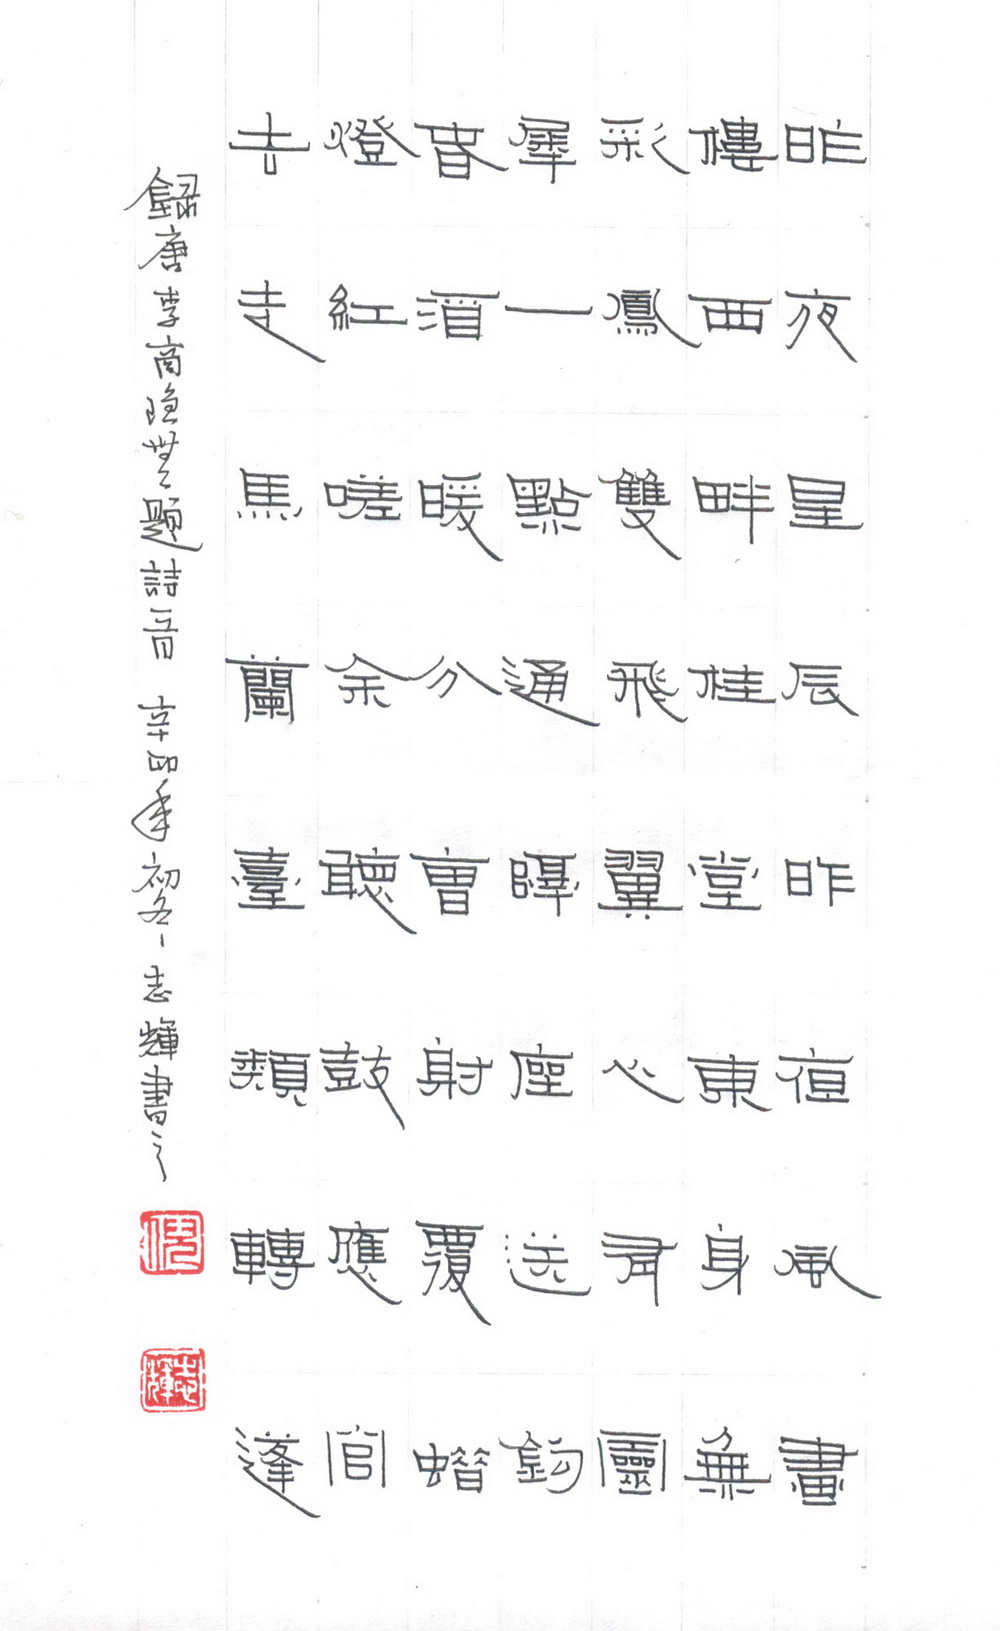 昨夜星辰昨亱風畫
樓西畔桂堂東身無
彩鳳雙飛翼心有靈
犀一點通隔座送鉤
春酒暖分曹射覆蠟
燈紅嗟余聽鼓應官
去走馬蘭臺類轉蓬
錄唐李商隱無題詩一首 辛卯年初冬 志輝書之
志輝